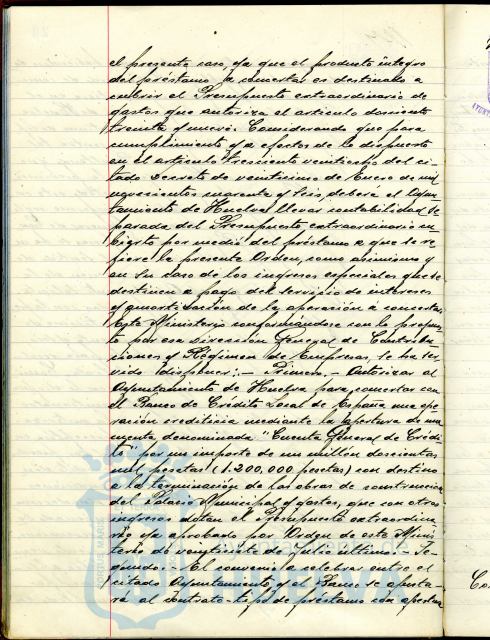 el presente caso, ya que el producto integro
del préstamo a concertar es destinado a
cubrir el Presupuesto extraordinario de
gastos que autoriza el articulo doscientos
treinta y nueve. Considerando que para
cumplimiento y a efectos de lo dispuesto
en el articulo trescientos veintiseis del ci-
tado Decreto de veinticinco de Enero de mil
novecientos cuarenta y seis, deberá el Ayun-
tamiento de Huelva llevar contabilidad se-
parada del Presupuesto extraordinario cu-
bierto por medio del préstamo a que se re-
fiere la presente Orden, como asimismo y
en su caso de los ingresos especiales que se
destinen a pago del servicio de intereses
y amortización de la operación á concertar,
Este Ministerio conformandose con lo propues-
to por esa Dirección General de Contribu-
ciones y Régimen de Empresas, se ha ser-
vido disponer:- Primero.- Autorizar al
Ayuntamiento de Huelva para, concertar con
el Banco de Crédito Local de España una ope-
ración crediticia mediante la apertura de una
cuenta denominada "Cuenta General de Crédi-
to" por un importe de un millón doscientas
mil pesetas (1.200,000 pesetas) con destino
a la terminación de las obras de construcción
del Palacio Municipal y gastos, que con otros
ingresos dotan el Presupuesto extraordina-
rio ya aprobado por Orden de este Minis-
terio de veintisiete de Julio último.- Se-
gundo.- El convenio a celebrar entre el
citado Ayuntamiento y el Banco se ajusta-
rá al contrato-tipo de préstamo con apertura
Co